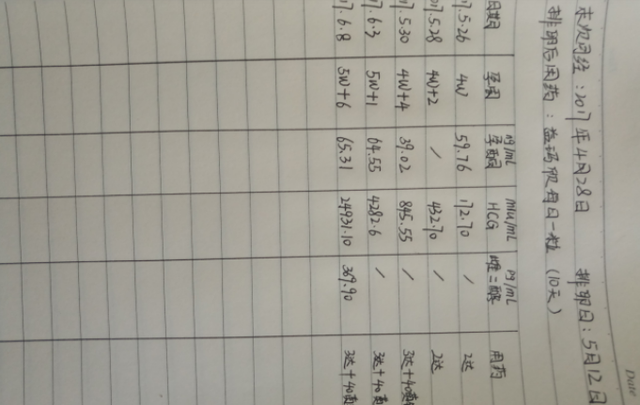 Date
末次月经：2017年4月28日 排卵日：5月12日
排卵后用药：益玛欣每日一粒（10天）
日期 孕周 ng/mL 孕酮 mIu/mL HCG pg/mL 雌二醇 用药
17.5.26 4W 59.76 172.70 / 2达
17.5.28 4W+2 / 432.70 / 2达
17.5.30 4W+4 39.02 845.55 / 3达+40
17.6.3 5W+1 64.55 4282.6 / 3达+40
17.6.8 5W+6 65.31 24931.10 369.90 3达+40